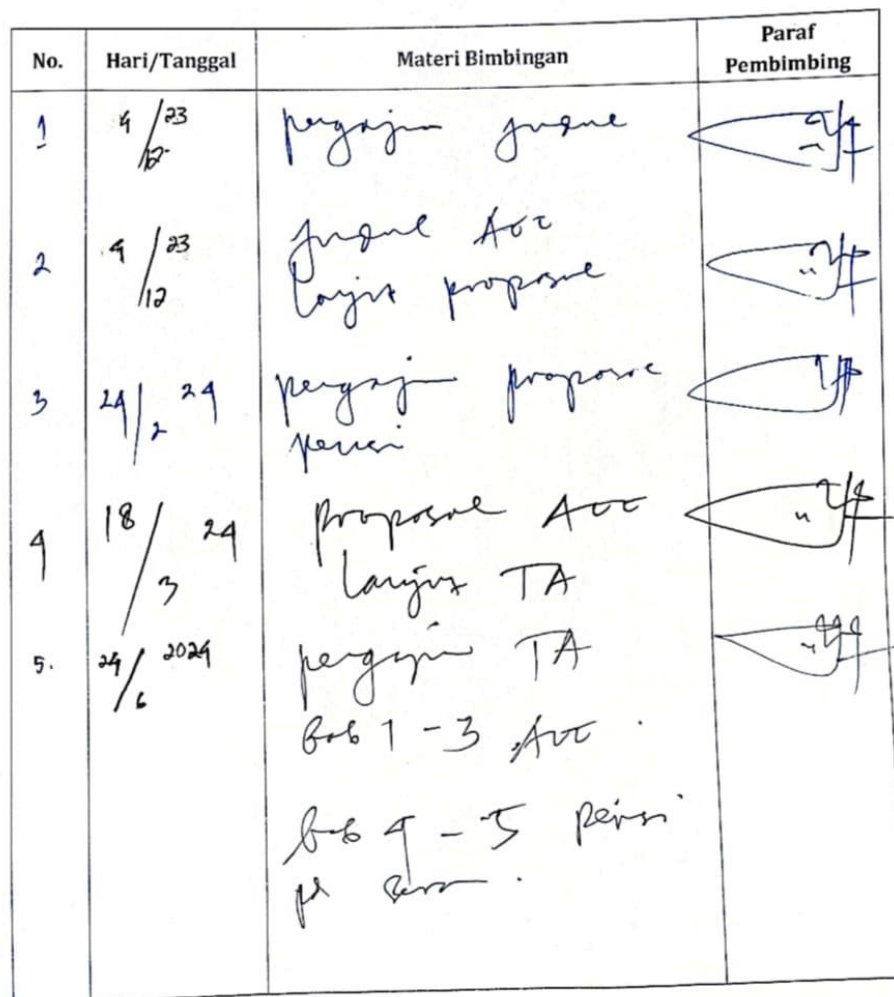 No. Hari/Tanggal Materi Bimbingan Paraf Pembimbing
1 4/12 23 pengajuan judul
2 4/12 23 judul ACC
lanjut proposal
3 24/2 24 pengajuan proposal
revisi
4 18/3 24 proposal ACC
lanjut TA
5. 24/6 2024 pengajuan TA
bab 1-3 ACC.
bab 4-5 revisi